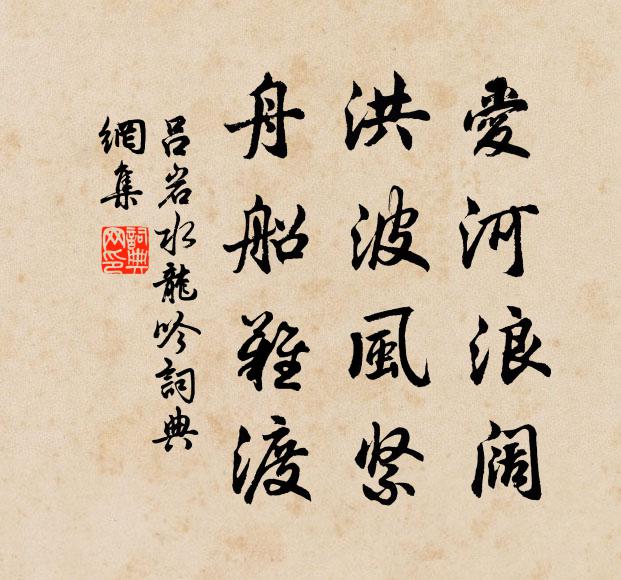 愛河浪闊
洪波風緊
舟船難渡
呂岩水龍吟詞典
網集
詞典
网印